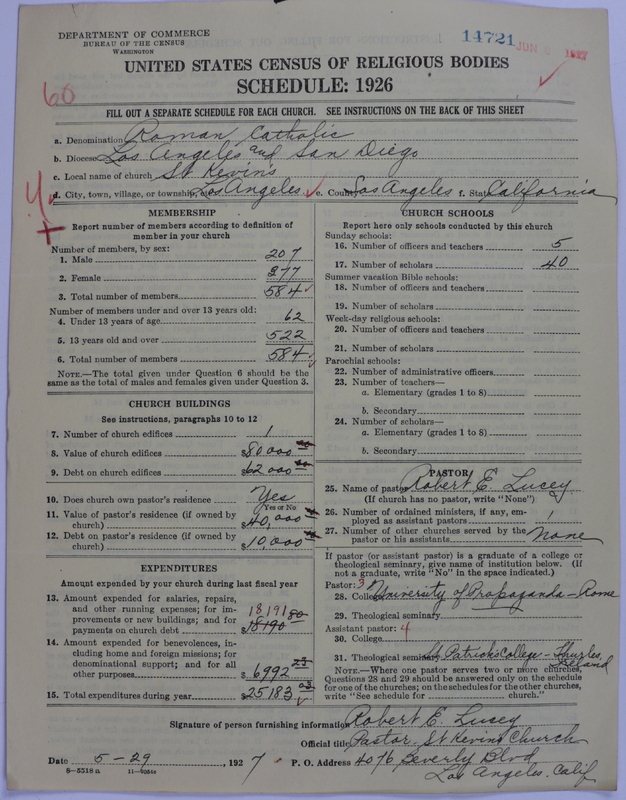 DEPARTMENT OF COMMERCE
BUREAU OF THE CENSUS
WASHINGTON
14721
JUN 1927
UNITED STATES CENSUS OF RELIGIOUS BODIES
SCHEDULE: 1926
60
FILL OUT A SEPARATE SCHEDULE FOR EACH CHURCH. SEE INSTRUCTIONS ON THE BACK OF THIS SHEET
a. Denomination Roman Catholic
b. Diocese Los Angeles and San Diego
c. Local name of church St Kevin's
d. City, town, village, or township, etc. Los Angeles e. County Los Angeles f. State California
MEMBERSHIP
Report number of members according to definition of
member in your church
Number of members, by sex:
1. Male 207
2. Female 277
3. Total number of members 584
Number of members under and over 13 years old:
4. Under 13 years of age 62
5. 13 years old and over 522
6. Total number of members 584
NOTE.—The total given under Question 6 should be
same as the total of males and females given under Question 3.
CHURCH BUILDINGS
See instructions, paragraphs 10 to 12
7. Number of church edifices 1
8. Value of church edifices $80,000
9. Debt on church edifices $62,000
10. Does church own pastor's residence Yes
Yes or No
11. Value of pastor's residence (if owned by
church) $40,000
12. Debt on pastor's residence (if owned by
church) $10,000
EXPENDITURES
Amount expended by your church during last fiscal year
13. Amount expended for salaries, repairs,
and other running expenses; for im-
provements or new buildings; and for
payments on church debt 18191 80 $18190
14. Amount expended for benevolences, in-
cluding home and foreign missions; for
denominational support; and for all
other purposes $6992 23
15. Total expenditures during year $25183 03
CHURCH SCHOOLS
Report here only schools conducted by this church
Sunday schools:
16. Number of officers and teachers 5
17. Number of scholars 40
Summer vacation Bible schools:
18. Number of officers and teachers
19. Number of scholars
Week-day religious schools:
20. Number of officers and teachers
21. Number of scholars
Parochial schools:
22. Number of administrative officers
23. Number of teachers—
a. Elementary (grades 1 to 8)
b. Secondary
24. Number of scholars—
a. Elementary (grades 1 to 8)
b. Secondary
PASTOR
25. Name of pastor Robert E. Lucey
(If church has no pastor, write "None")
26. Number of ordained ministers, if any, em-
ployed as assistant pastors 1
27. Number of other churches served by the
pastor or his assistants None
If pastor (or assistant pastor) is a graduate of a college or
theological seminary, give name of institution below. (If
not a graduate, write "No" in the space indicated.)
Pastor: 3
28. College University of Propaganda - Rome
29. Theological seminary
Assistant pastor: 4
30. College
31. Theological seminary St Patricks College - Thurles
Ireland
NOTE.—Where one pastor serves two or more churches,
Questions 28 and 29 should be answered only on the schedule
for one of the churches; on the schedules for the other churches,
write "See schedule for church."
Signature of person furnishing information Robert E. Lucey
Official title Pastor, St Kevins Church
Date 5-29, 1927 P. O. Address 4076 Beverly Blvd
Los Angeles. Calif
8—5518 a